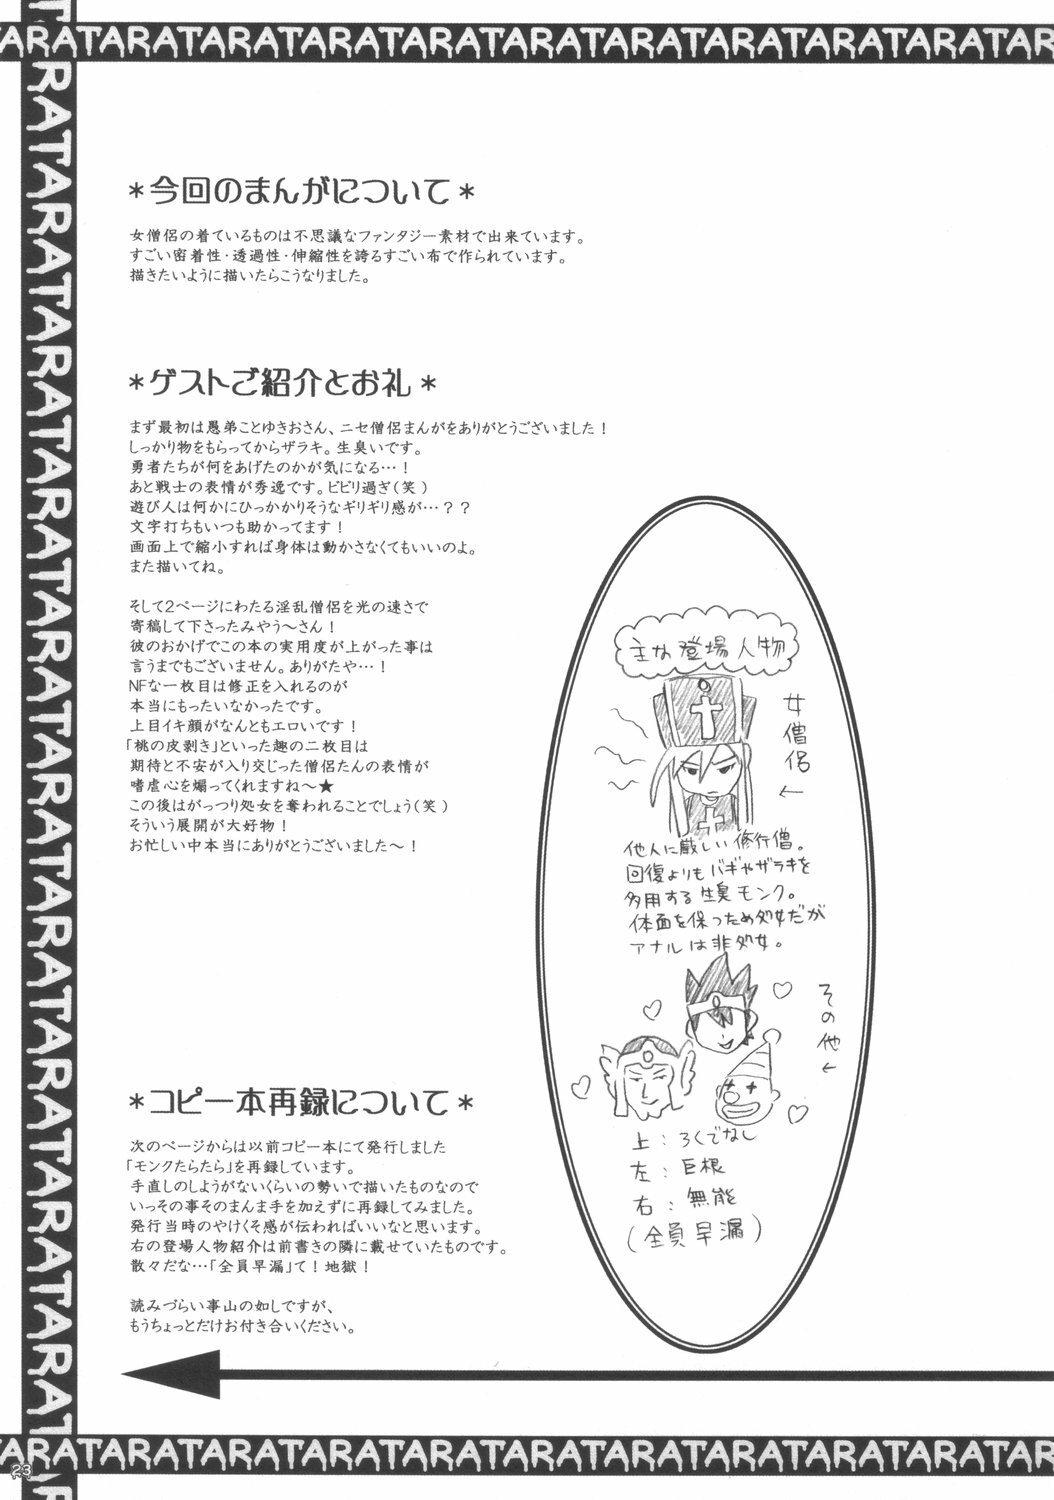 TARATARATARATARATARATARATARATARATARATARATAR
RATARATARATARATARATARATARATARATARATARATAR
＊今回のまんがについて＊
女僧侶の着ているものは不思議なファンタジー素材で出来ています。
すごい密着性・透過性・伸縮性を誇るすごい布で作られています。
描きたいように描いたらこうなりました。
＊ゲストご紹介とお礼＊
まず最初は愚弟ことゆきおさん、ニセ僧侶まんがをありがとうございました！
しっかり物をもらってからザラキ。生臭いです。
勇者たちが何をあげたのかが気になる…！
あと戦士の表情が秀逸です。ビビリ過ぎ（笑）
遊び人は何かにひっかかりそうなギリギリ感が…？？
文字打ちもいつも助かってます！
画面上で縮小すれば身体は動かさなくてもいいのよ。
また描いてね。
そして2ページにわたる淫乱僧侶を光の速さで
寄稿して下さったみやう～さん！
彼のおかげでこの本の実用度が上がった事は
言うまでもございません。ありがたや…！
NFな一枚目は修正を入れるのが
本当にもったいなかったです。
上目イキ顔がなんともエロいです！
「桃の皮剥き」といった趣の二枚目は
期待と不安が入り交じった僧侶たんの表情が
嗜虐心を煽ってくれますね～★
この後はがっつり処女を奪われることでしょう（笑）
そういう展開が大好物！
お忙しい中本当にありがとうございました～！
主な登場人物
女僧侶←
他人に厳しい修行僧。
回復よりもバギやザラキを
多用する生臭モンク。
体面を保つため処女だが
アナルは非処女。
その他←
上：ろくでなし
左：巨根
右：無能
（全員早漏）
＊コピー本再録について＊
次のページからは以前コピー本にて発行しました
「モンクたらたら」を再録しています。
手直しのしようがないくらいの勢いで描いたものなので
いっその事そのまんま手を加えずに再録してみました。
発行当時のやけくそ感が伝わればいいなと思います。
右の登場人物紹介は前書きの隣に載せていたものです。
散々だな…「全員早漏」て！地獄！
読みづらい事山の如しですが、
もうちょっとだけお付き合いください。
ARATARATARATARATARATARATARATARATARATARATAR
23